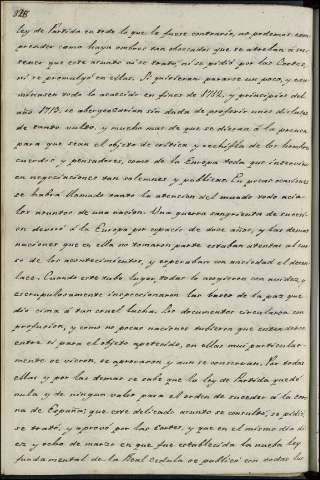 328
ley de Partida en todo lo que le fuese contrario, no podemos com-
prender como haya ombres tan obsecados que se atreban á sos-
tener que este asunto ni se trató, ni se pidió por las Cortes,
ni se promulgó en ellas. Si quisieran pararse un poco, y exa-
minasen todo lo acaecido en fines de 1712, y principios del
año 1713, se abergonzarian sin duda de proferir unos dislates
de tanto vulto, y mucho mas de que se dieran á la prensa
para que sean el objeto de critica y rechifla de los hombres
cuerdos y pensadores, como de la Europa toda que intervino
en negociaciones tan solemnes y publicas. En pocas ocasiones
se habrá llamado tanto la atencion del mundo todo acia
los asuntos de una nacion. Una guerra sangrienta de sucesi-
on devoró á la Europa por espacio de doce años, y las demas
naciones que en ella no tomaron parte estaban atentas al cur-
so de los acontecimientos, y esperaban con ansiedad el desen-
lace. Cuando este tubo lugar, todas lo acogieron con avidez, y
escrupulosamente inspeccionaron las bases de la paz que
dio cima á tan cruel lucha. Los documentos circularon con
profusion, y como no pocas naciones tubieron que entenderse
entre si para el objeto apetecido, en ellas mui particular-
mente se vieron, se aprovaron y aun se conservan. Por todas
ellas y por las demas se sabe que la ley de Partida quedó
nula y de ningun valor para el orden de suceder á la coro-
na de España; que este delicado asunto se consultó, se pidió,
se trató, y aprovó por las Cortes, y que en el mismo dia di-
ez y ocho de marzo en que fue establecida la nueba ley
fundamental de la Real Cedula se publicó con todas las